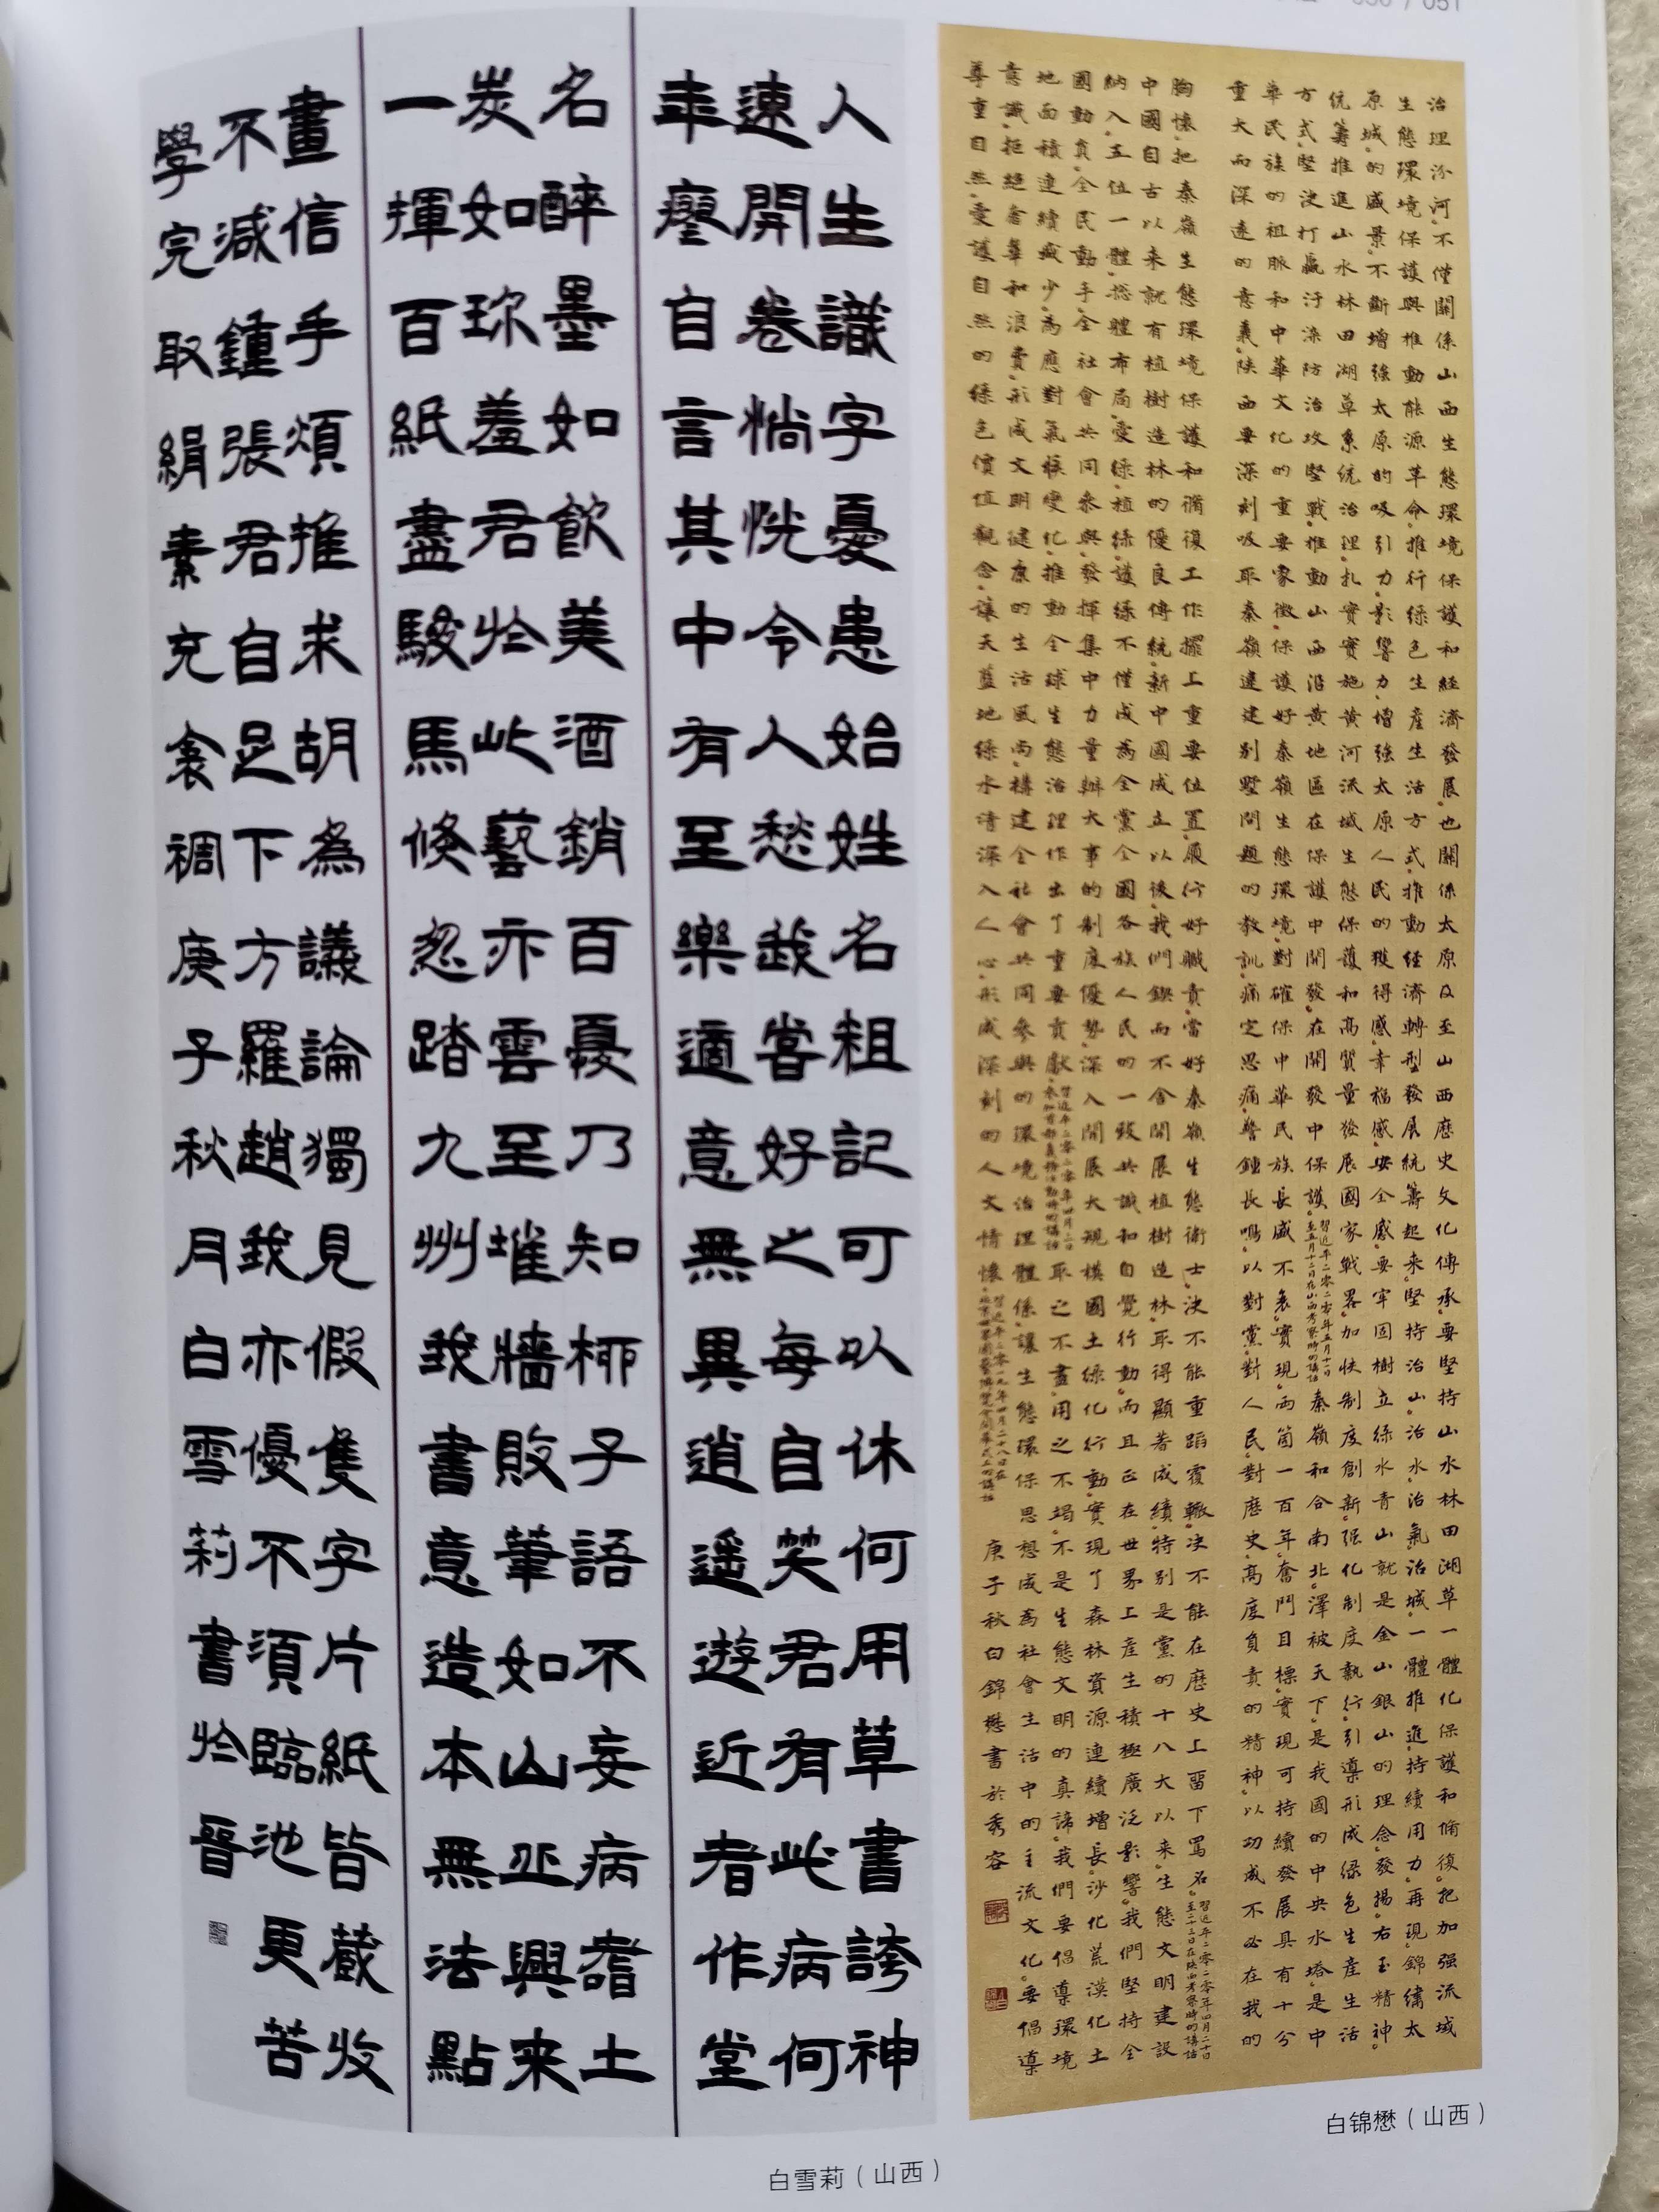 / 051
治理汾河。不僅關係山西生態環境保護和經濟發展。也關係太原及至山西歷史文化傳承。要堅持山水林田湖草一體化保護和脩復。把加强流域
生態環境保護與推動能源革命。推行綠色生產生活方式。推動經濟轉型發展統籌起来。堅持治山。治水。治氣。治城。一體推進。持續用力。再現。錦繡太
原城。的盛景。不斷增強太原的吸引力。影響力。增強太原人民的獲得感。幸福感。安全感。要牢固樹立綠水青山就是金山銀山的理念。發揚右玉精神。
統籌推進山水林田湖草系統治理。扎實實施黄河流域生態保護和高質量發展國家戰畧。加快制度創新。强化制度執行。引導形成绿色生產生活
方式。堅決打贏汙染防治攻堅戰。推動山西沿黄地區在保護中開發。在開發中保護。習近平二零二零年五月十一日至五月十二日在山西考察時的講話 秦嶺和合南北。澤被天下。是我國的中央水塔。是中
華民族的祖脈和中華文化的重要象徵。保護好秦嶺生態環境。對確保中華民族長盛不衰。實現兩箇一百年。奮鬥目標。實現可持續發展具有十分
重大而深遠的意義。陕西要深刻吸取秦嶺違建别墅問題的教訓。痛定思痛。警鐘長鳴。以對黨。對人民。對歷史。高度負責的精神。以功成不必在我的
胸懷。把秦嶺生態環境保護和脩復工作擺上重要位置。履行好職責。當好秦嶺生態衛士。決不能重蹈覆轍。決不能在歷史上留下罵名。習近平二零二零年四月二十日至二十三日在陝西考察時的講話
中國自古以来就有植樹造林的優良傳統。新中國成立以後。我們鍥而不舍開展植樹造林。取得顯著成績。特别是黨的十八大以来。生態文明建設
納入。五位一體。總體布局。愛綠。植綠。護綠。不僅成為全黨全國各族人民的一致共識和自覺行動。而且正在世界上產生積極廣泛影響。我們堅持全
國動員。全民動手。全社會共同参與。發揮集中力量辦大事的制度優勢。深入開展大規模國土绿化行動。實現了森林資源連續增長。沙化荒漠化土
地面積連續减少。為應對氣候變化。推動全球生態治理作出了重要貢獻。習近平二零二零年四月三日参加首都義務植樹活動時的講話 取之不盡。用之不竭。不是生態文明的真諦。我們要倡導環境
意識。拒絕奢華和浪費。形成文明健康的生活風尚。構建全社會共同參與的環境治理體係。讓生態環保思想成為社會生活中的主流文化。要倡導
尊重自然。愛護自然的綠色價值觀念。讓天藍地綠水清深入人心。形成深刻的人文情懷。習近平二零一九年四月二十八日在北京世界園藝博覽會開幕式上的講話 庚子秋白錦懋書於秀容
白锦懋（山西）
人生識字憂患始姓名粗記可以休何用草書誇神
速開卷惝怳令人愁我嘗好之每自笑君有此病何
年廖自言其中有至樂適意無異逍遥遊近者作堂
名醉墨如飲美酒銷百憂乃知柳子語不妄病嗜土
炭如珍羞君於此藝亦雲至堆牆敗筆如山丘興来
一揮百紙盡駿馬倏忽踏九州我書意造本無法點
畫信手煩推求胡為議論獨見假隻字片紙皆藏收
不減鍾張君自足下方羅趙我亦優不須臨池更苦
學完取絹素充衾裯庚子秋月白雪莉書於晉
白雪莉（山西）